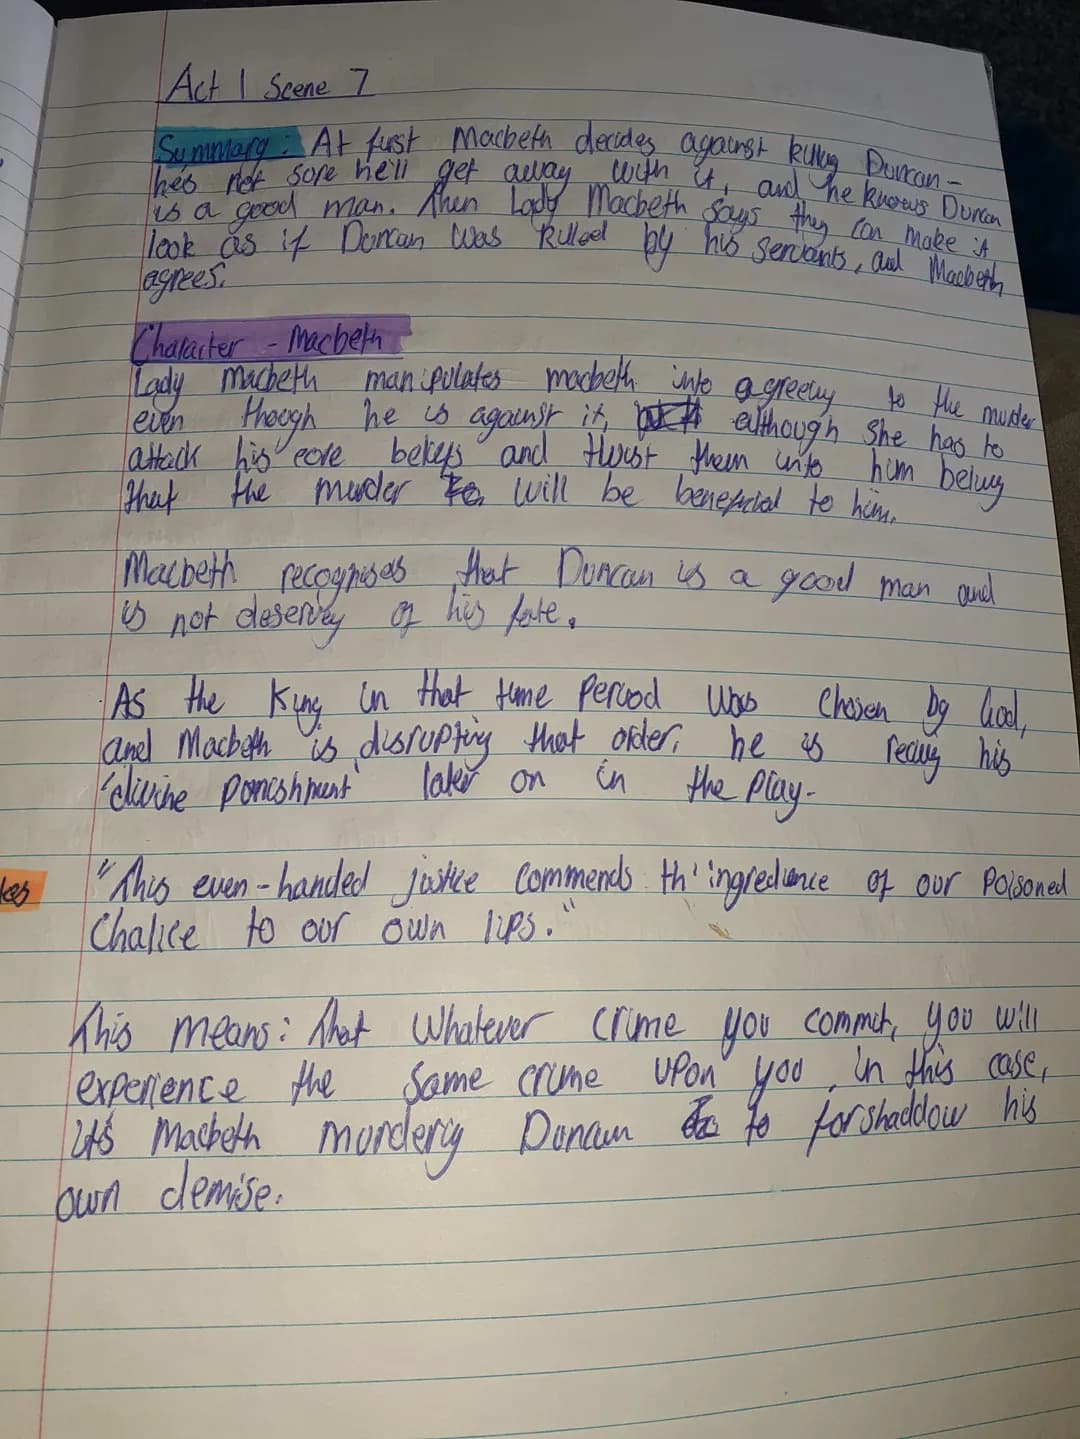 Act 1 Scene 7
Summary: At first Macbeth decides against killing Duncan -
he's not sore he'll get away with it, and he knows Duncan
is a good man. Then Lady Macbeth says they can make it
look as if Duncan was killed by his servants, and Macbeth
agrees.
Character - Macbeth
Lady Macbeth manipulates macbeth into agreeing to the murder
even though he is against it, although she has to
attack his core beliefs and thrust them into him
that the murder will be beneficial to him.
Macbeth recognises that Duncan is a good man and
is not deserving of his fate.
As the King in that time period was chosen by God,
and Macbeth is disrupting that order, he is his
'divine ponishment' later on in the play-
kes
"This even-handed jostice commends th' ingredience of our poisoned
Chalice to our own lips."
This means: That whatever crime you commit, you will
experience the same crime upon you, in this case,
it's Macbeth mordering Duncan to forshaddow his
own demise.